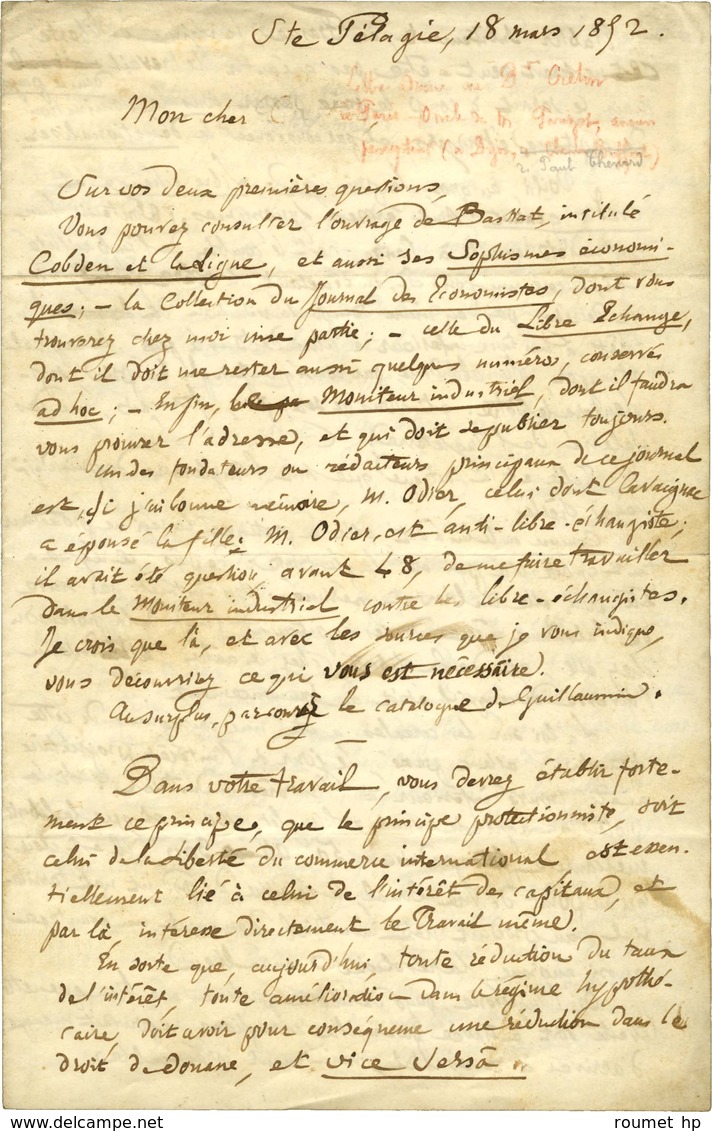 Ste Pélagie, 18 mars 1852.
Mon cher
Paul Thenard
Sur vos deux premières questions,
Vous pouvez consulter l'ouvrage de Bastiat, intitulé
Cobden et la Ligue, et aussi ses Sophismes économi-
ques; — la Collection du Journal des Economistes, dont vous
trouverez chez moi une partie; — celle du Libre Echange,
dont il doit me rester aussi quelques numéros, conservés
ad hoc; — Enfin, le Moniteur industriel, dont il faudra
vous procurer l'adresse, et qui doit se publier toujours.
Un des fondateurs ou rédacteurs principaux de ce journal
est, si j'ai bonne mémoire, M. Odier, celui dont Cavaignac
a épousé la fille; M. Odier est anti-libre-échangiste;
il avait été question, avant 48, de me faire travailler
dans le Moniteur industriel contre les libre-échangistes.
Je crois que là, et avec les sources que je vous indique,
vous découvrirez ce qui vous est nécessaire.
Au surplus, parcourez le catalogue de Guillaumin.
—
Dans votre travail, vous devrez établir forte-
ment ce principe, que le principe protectionniste, soit
celui de la Liberté du commerce international est essen-
tiellement lié à celui de l'intérêt des capitaux, et
par là, intéresse directement le Travail même.
En sorte que, aujourd'hui, toute réduction du taux
de l'intérêt, toute amélioration dans le régime hypothé-
caire, doit avoir pour conséquence une réduction dans le
droit de douane, et vice versâ.
roumet hp